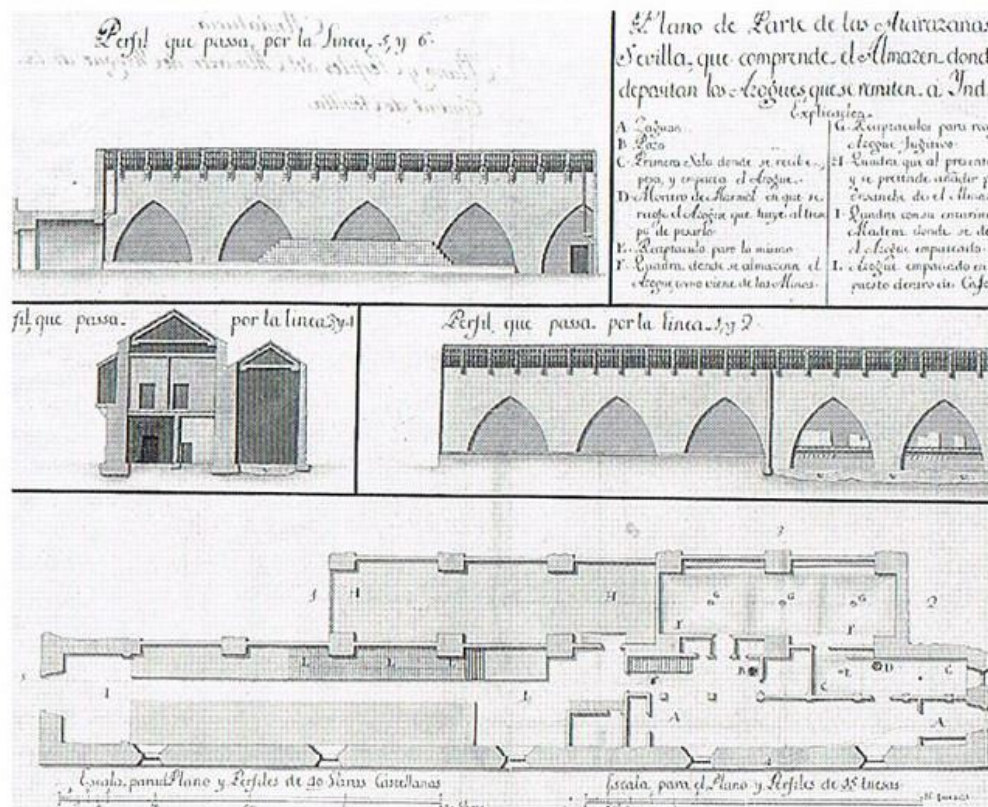 Perfil que passa, por la linea, 5, y 6.
Plano de Parte de las Atarazanas
Sevilla, que comprende, el Almazen dond
depositan los Azogues, que se remiten, a Ynd
Explicacion.
A Zaguan
B Pozo
C Primera Sala donde se recibe,
pesa, y empaca el Azogue.
D Mortero de Marmol en que se
recoge el Azogue que huye al tiem
po de pesarlo
E Receptaculo para lo mismo
F Quadra, donde se almazena el
Azogue como viene de las Minas.
G Receptaculos para reco
Azogue fugitivo
H Quadra, que al presente
y se pretende añadir p
ensanche de el Alma
I Quadra con su
Madera donde se de
el Azogue empacado.
L Azogue empacado en
puesto dentro de
fil, que passa. por la linea 3 y 4
Perfil, que passa por la linea 1, y 2
3
5 H H G G G 2
F F
L L L B E D C
I L 6 C
A A
4
Escala, para el Plano y Perfiles de 40 Varas Castellanas
Escala, para el Plano y Perfiles de tuesas